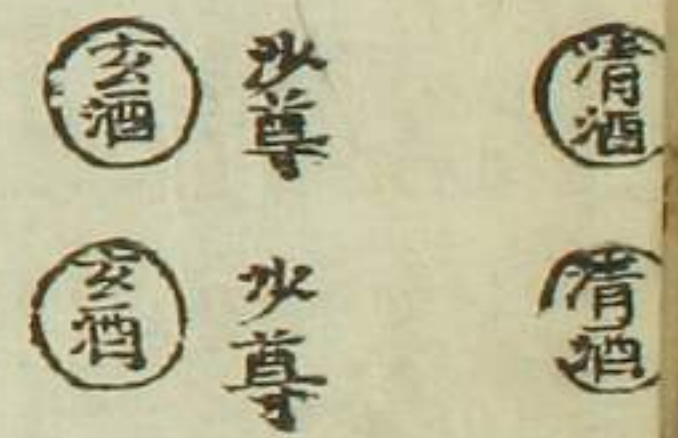 清酒
沙尊
玄酒
清酒
沙尊
玄酒